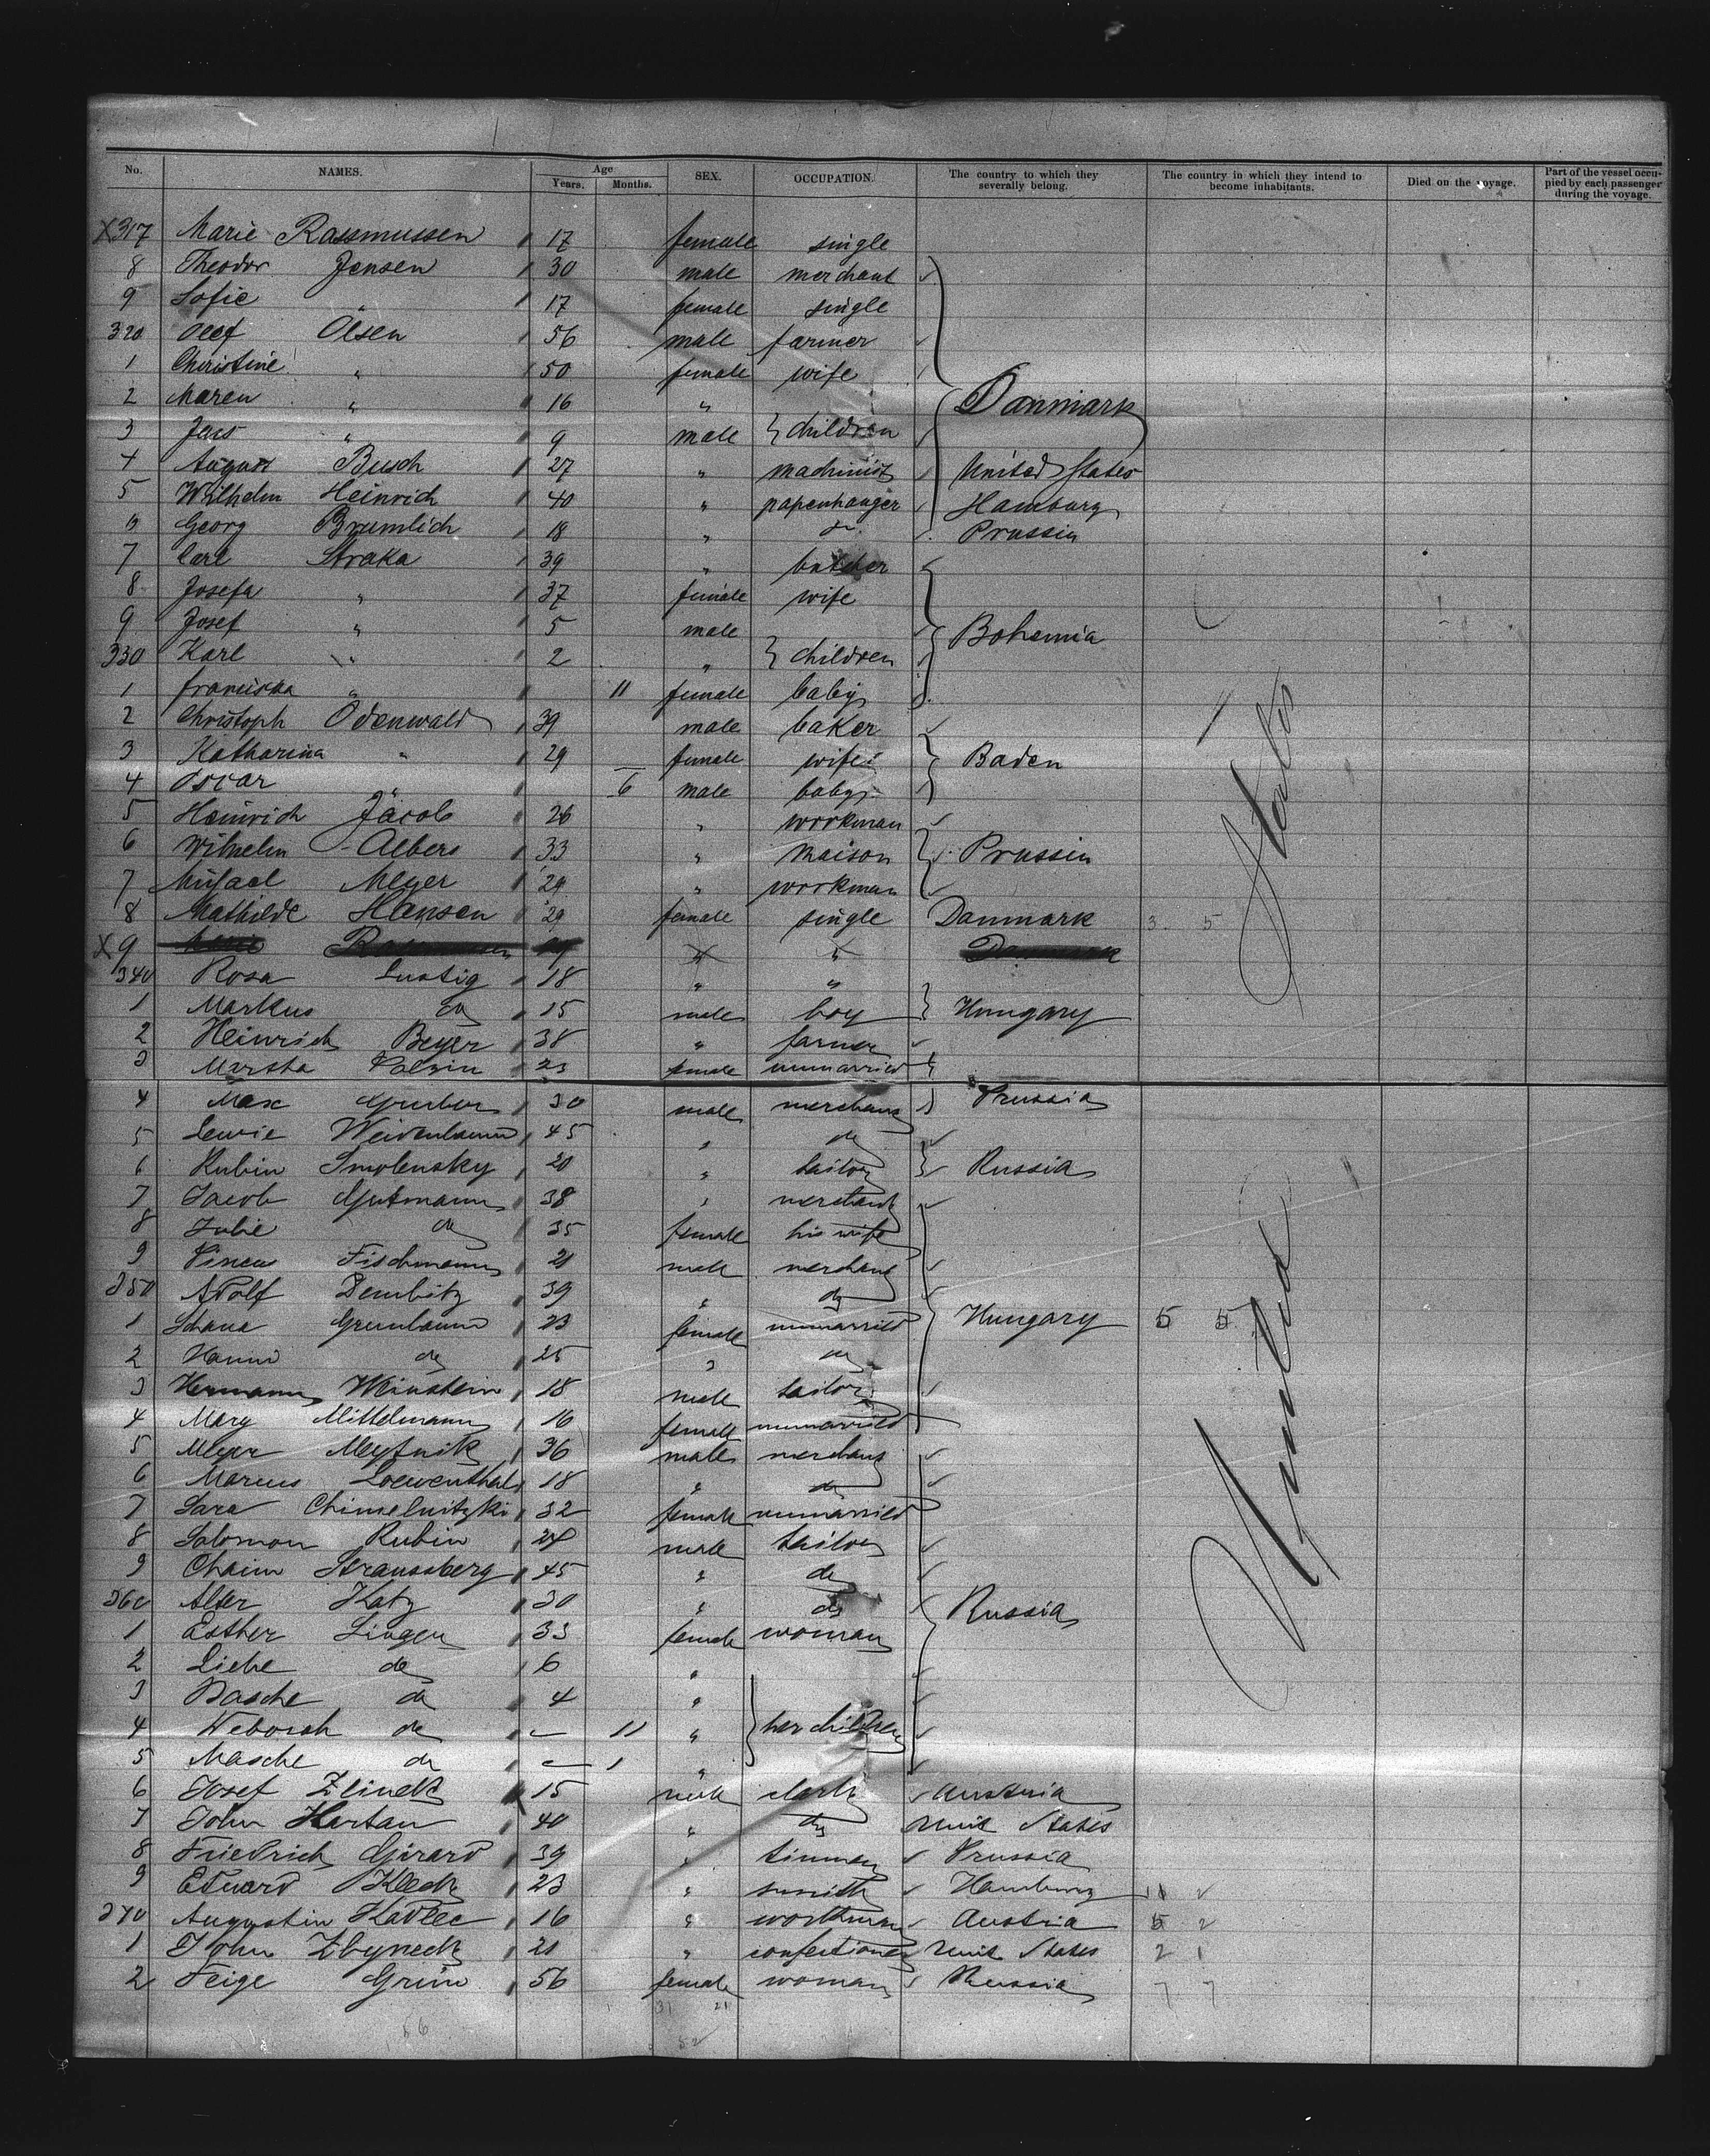 No. NAMES. Age Years. Months. SEX. OCCUPATION. The country to which they severally belong. The country in which they intend to become inhabitants. Died on the voyage. Part of the vessel occupied by each passenger during the voyage.
X317 Marie Rassmussen 17 female single
8 Theodor Jensen 30 male merchant
9 Sofie " 17 female single
320 Olef Olsen 56 male farmer
1 Christine " 50 female wife
2 Maren " 16 " Danmark
3 Jens " 9 male } children
4 August Busch 27 " machinist United States
5 Wilhelm Heinrich 40 " papenhanger Hamburg
6 Georg Brumlich 18 " do Prussia
7 Carl Straka 39 " butcher
8 Josefa " 37 female wife
9 Josef " 5 male Bohemia
330 Karl " 2 " } children
1 Franciska " 11 female baby
2 Christoph Odenwald 39 male baker
3 Katharina " 29 female wife Baden
4 Oscar " 6 male baby
5 Heinrich Jacob 26 " workman
6 Wilhelm Albers 33 " maison Prussia
7 Meyer 29 " workman
8 Mathilde Hansen 29 female single Danmark 3 5
X9 " "
340 Rosa Lustig 18 " "
1 Markus do 15 male boy Hungary
2 Heinrich Beyer 38 " farmer
3 Martha 23 female unmarried
4 Max 30 male merchant Prussia
5 45 " do
6 Rubin Smolensky 20 " tailor Russia
7 Jacob Gutmann 38 " merchant
8 Julie do 35 female his wife
9 Fischmann 21 male merchant
350 Adolf Dembitz 39 " do
1 Grünbaum 23 female unmarried Hungary 5 5
2 do 25 " do
3 Hermann Weinstein 18 male tailor
4 Mary Mittelmann 16 female unmarried
5 Meyer 36 male merchant
6 Marcus Loewenthal 18 " do
7 Sara 32 female unmarried
8 Salomon Rubin 24 male tailor
9 Chaim Straussberg 45 " do
360 Alter Katz 30 " do Russia
1 Esther 33 female woman
2 Liebe do 6 "
3 Basche do 4 "
4 Weborah do — 11 " } her children
5 Masche do — 1 "
6 Josef 15 male clark Austria
7 John Hartan 40 " do Unit States
8 Friedrich Girard 39 " tinman Prussia
9 Eduard Kleck 23 " smith Hamburg 11
370 Augustin Havlec 16 " workman Austria 5 2
1 John Zbyneck 21 " confectioner Unit States 2 1
2 Feige Grün 56 female woman Russia 7 7
31 21
56 52
United States